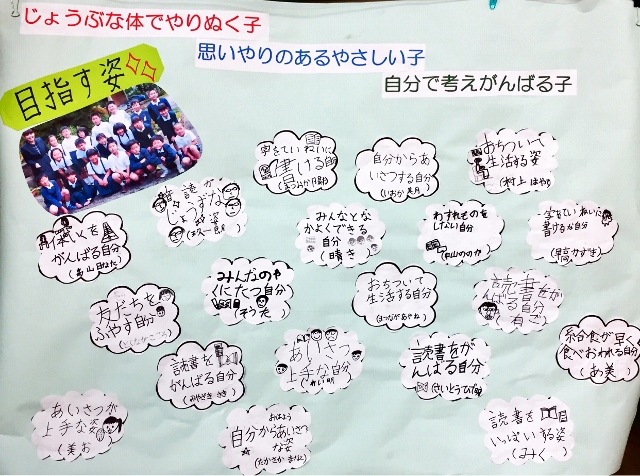 じょうぶな体でやりぬく子
思いやりのあるやさしい子
自分で考えがんばる子
目指す姿
字をていねいに
書ける自分
自分からあ
いさつする自分
(いおか 美月)
おちついて
生活する姿
(村上 はやと)
国語が
じょうずな
姿
体いくを
がんばる自分
みんなとな
かよくできる
自分
(晴き)
わすれものを
しない自分
(中山ののか)
字をていねいに
書ける自分
みんなのや
くにたつ自分
(そう太)
おちついて
生活する自分
(まつながあやね)
読書をが
んばる自分
友だちを
ふやす自分
読書を
がんばる自分
(みやざき さき)
あいさつ
上手な自分
読書をが
んばる自分
(さいとうひなの)
給食が早く
食べおわれる自分
(あ美)
あいさつが
上手な姿
(美お)
おはよう
自分からあいさつ
な姿
(たかさか まなと)
読書を
いっぱいする姿
(みく)